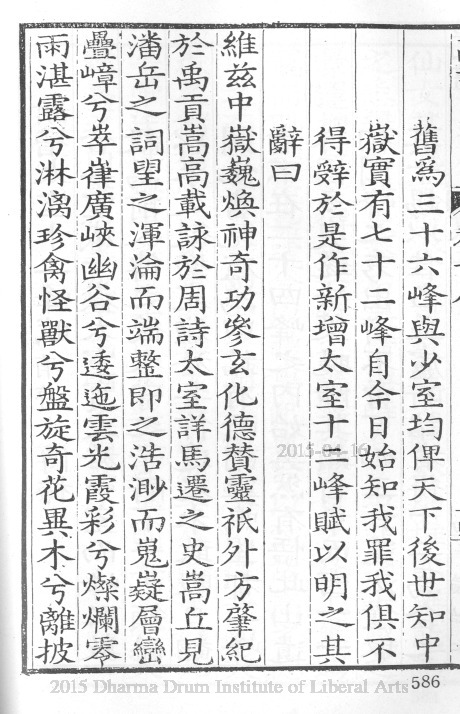 舊爲三十六峰與少室均俾天下後世知中
嶽實有七十二峰自今日始知我罪我俱不
得辭於是作新增太室十二峰賦以明之其
辭曰
維茲中嶽巍煥神奇功參玄化德贊靈祇外方肇紀
於禹貢嵩高載詠於周詩太室詳馬遷之史嵩丘見
潘岳之詞望之渾淪而端整即之浩渺而嵬嶷層巒
疊嶂兮崒嵂廣峽幽谷兮逶迤雲光霞彩兮燦爛零
雨湛露兮淋漓珍禽怪獸兮盤旋奇花異木兮離披
2015-04-16
2015 Dharma Drum Institute of Liberal Arts
586